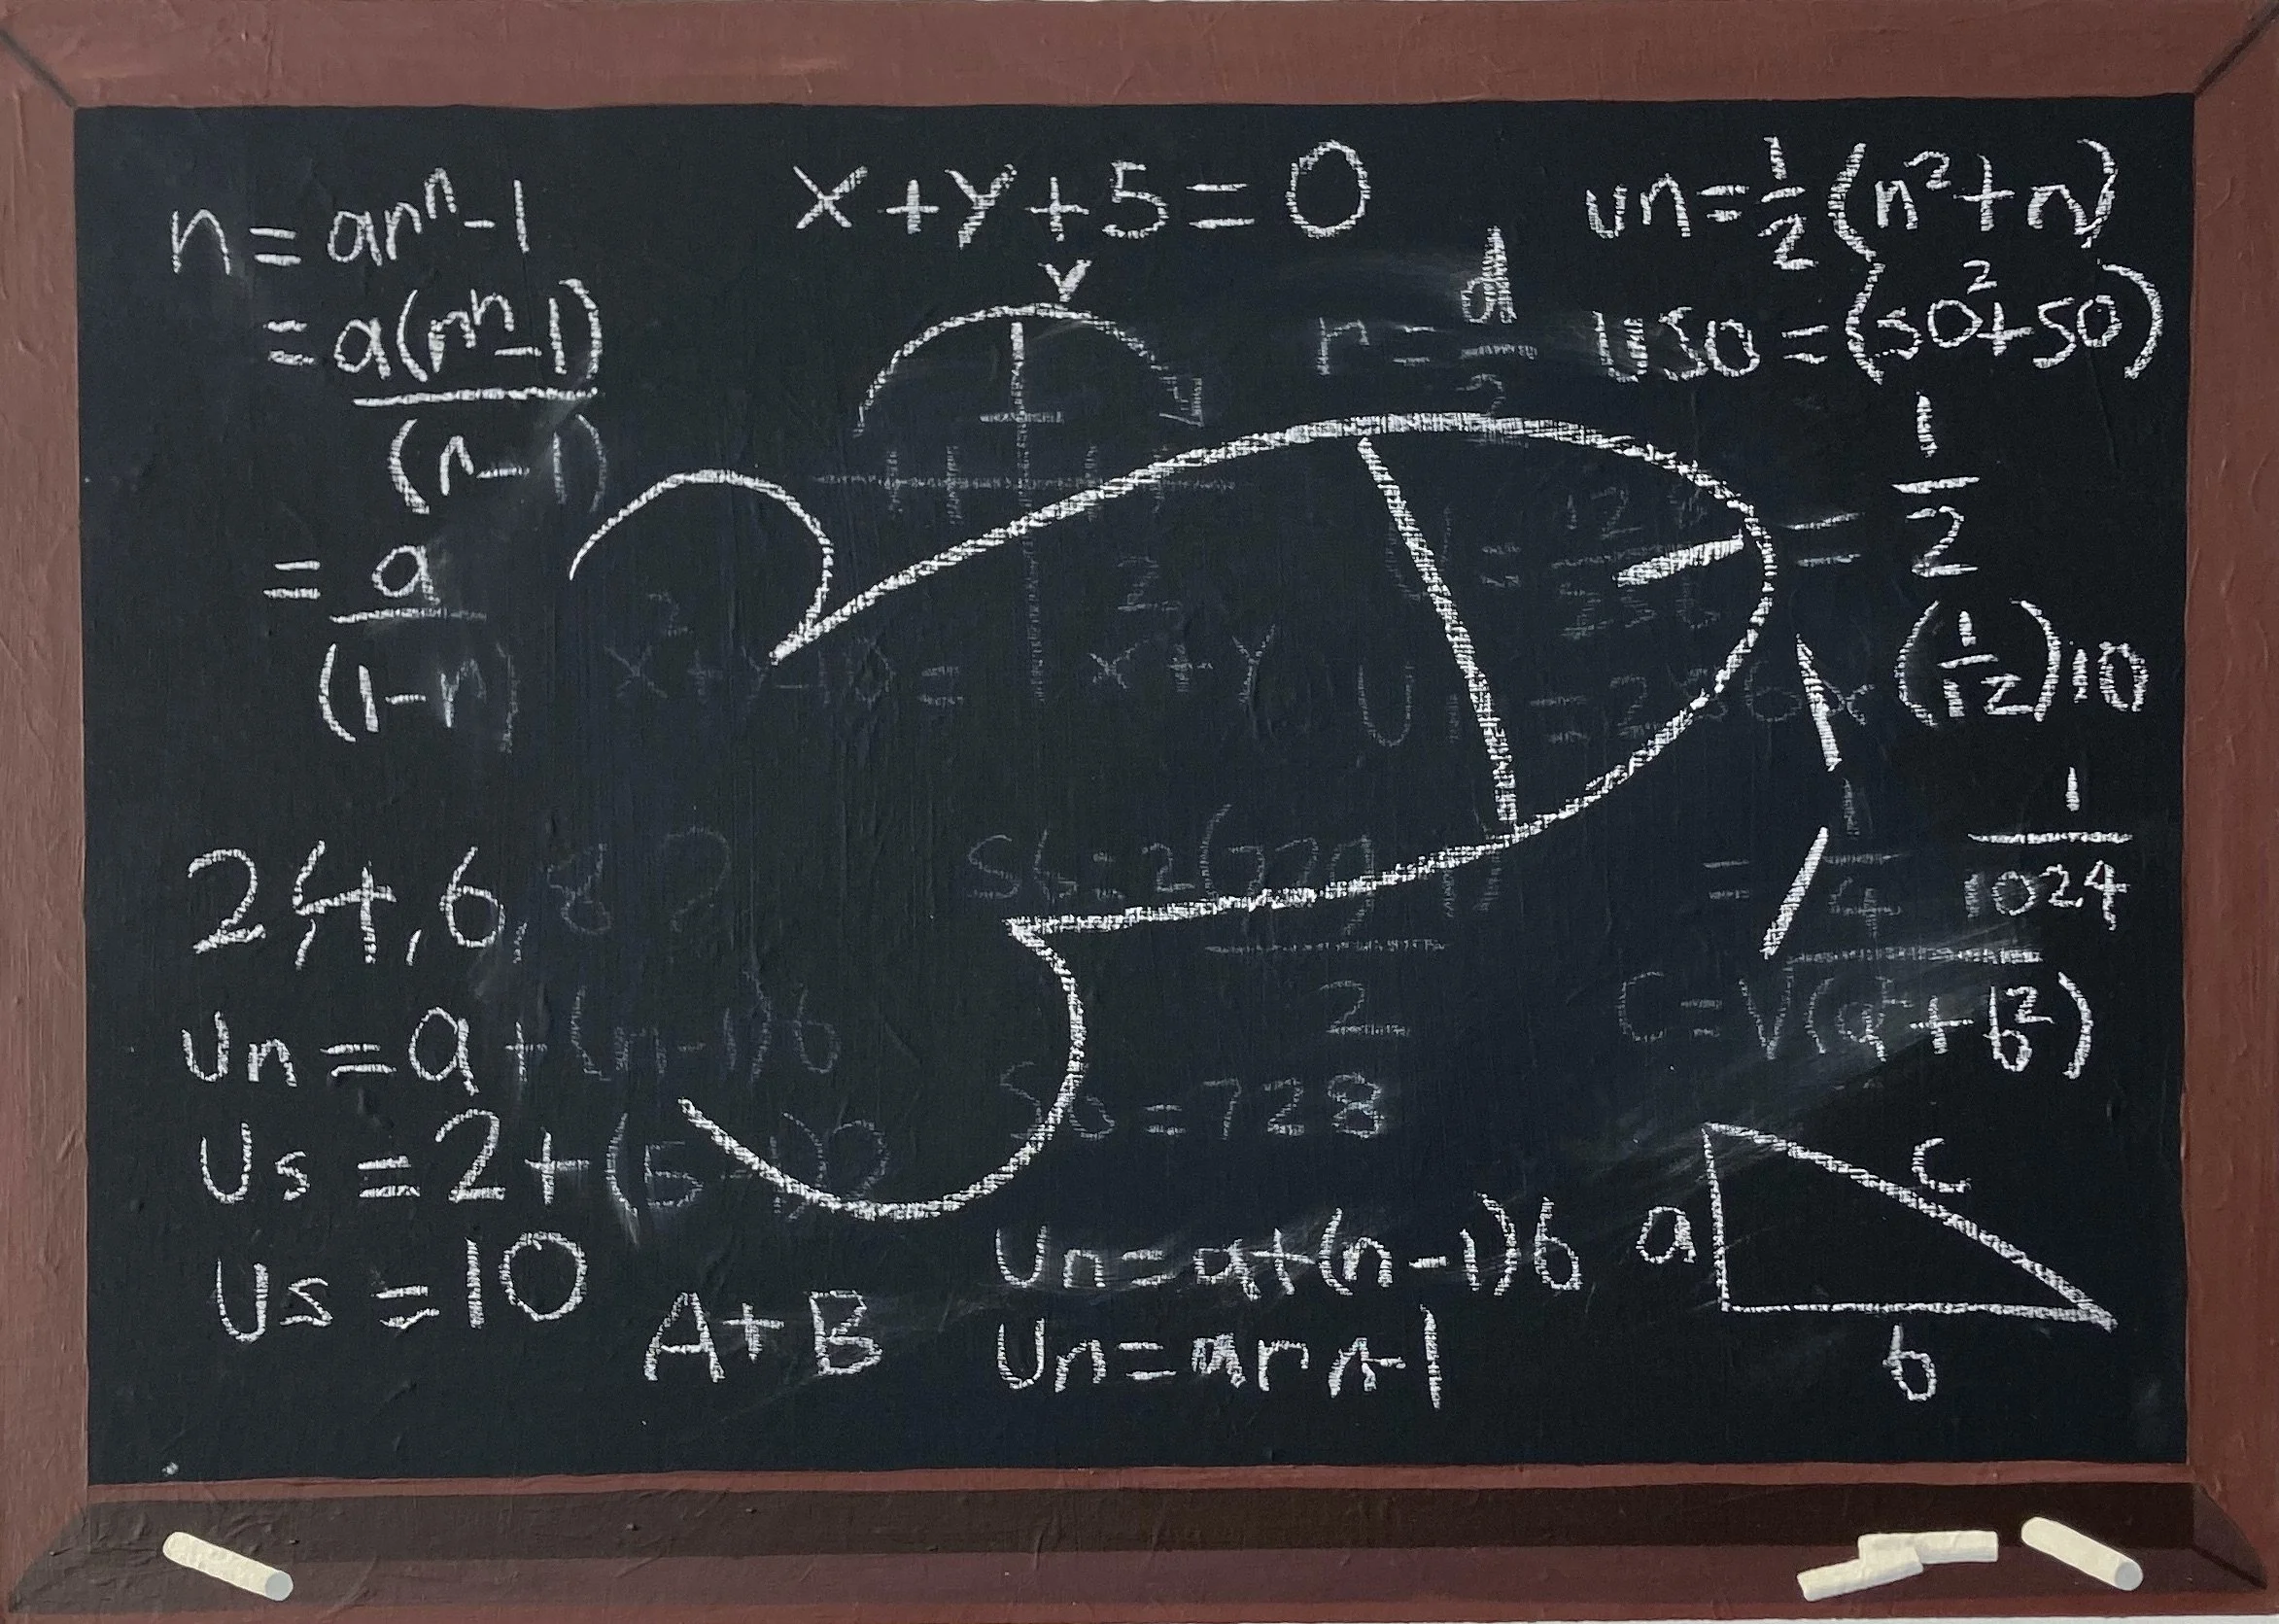 n = arⁿ - 1
= a(rⁿ - 1)
(r - 1)
= a
(1 - r)
x + y + 5 = 0
y
r = d
2
un = 1/2 (n² + n)
u50 = (50² + 50)
= 1
2
(1/2)10
1
1024
2, 4, 6, 8 ?
Un = a + (n - 1)b
U5 = 2 + (5 - 1)2
U5 = 10
A + B
2
S6 = 728
Un = a + (n - 1)b
Un = ar n-1
C = √(a² + b²)
a
c
b